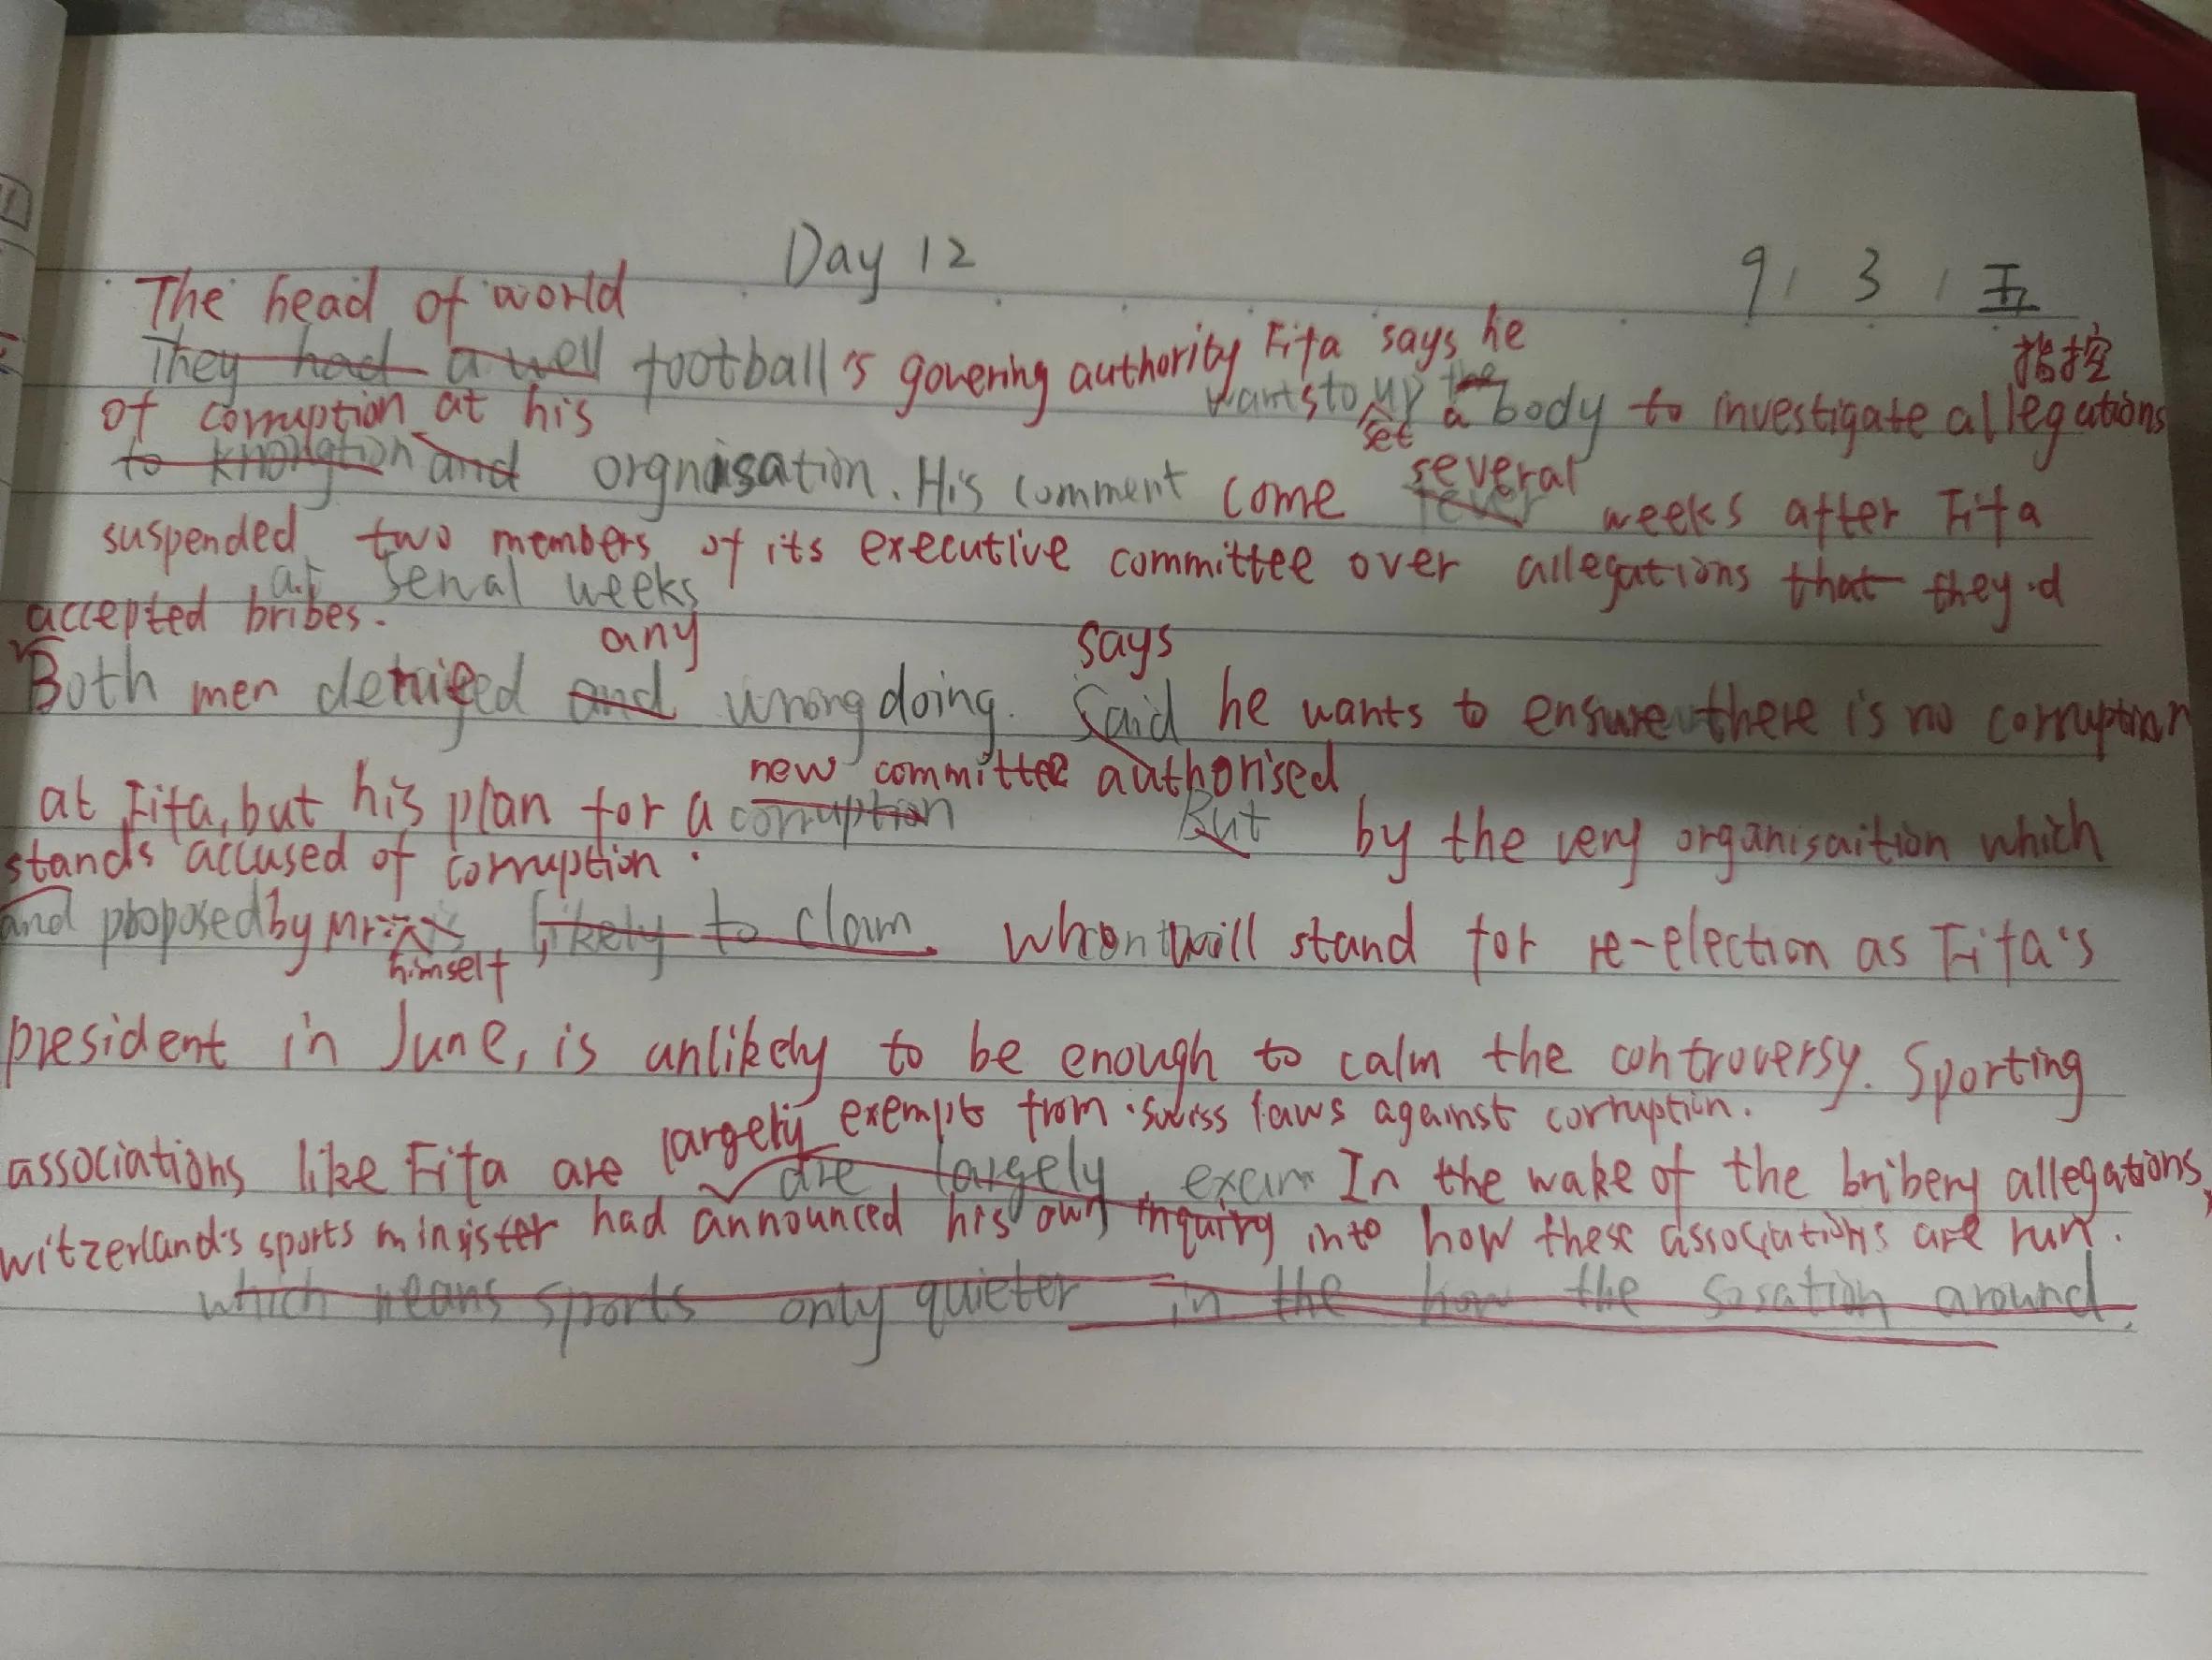 Day 12
9 / 3 / 五
The head of world
They had a well football's govering authority Fifa says he
指控
wants to up the a body to investigate allegations
set
of corruption at his
and orgnaisation. His comment come several weeks after Fifa
suspended two members of its executive committee over allegations that they'd
at serial weeks
accepted bribes.
any says
Both men denied and wrong doing. Said he wants to ensure there is no corruption
new committee authorised
at Fifa, but his plan for a corruption But by the very organisaition which
stands accused of corruption.
and proposed by Mr likely to clam. who will stand for re-election as Fifa's
himself
president in June, is unlikely to be enough to calm the controversy. Sporting
largely exempts from swiss laws against corruption.
associations like Fifa are are largely exem In the wake of the bribery allegations,
witzerland's sports minsister had announced his own inquiry into how these associations are run.
which means sports only quieter in the how the sosation around.